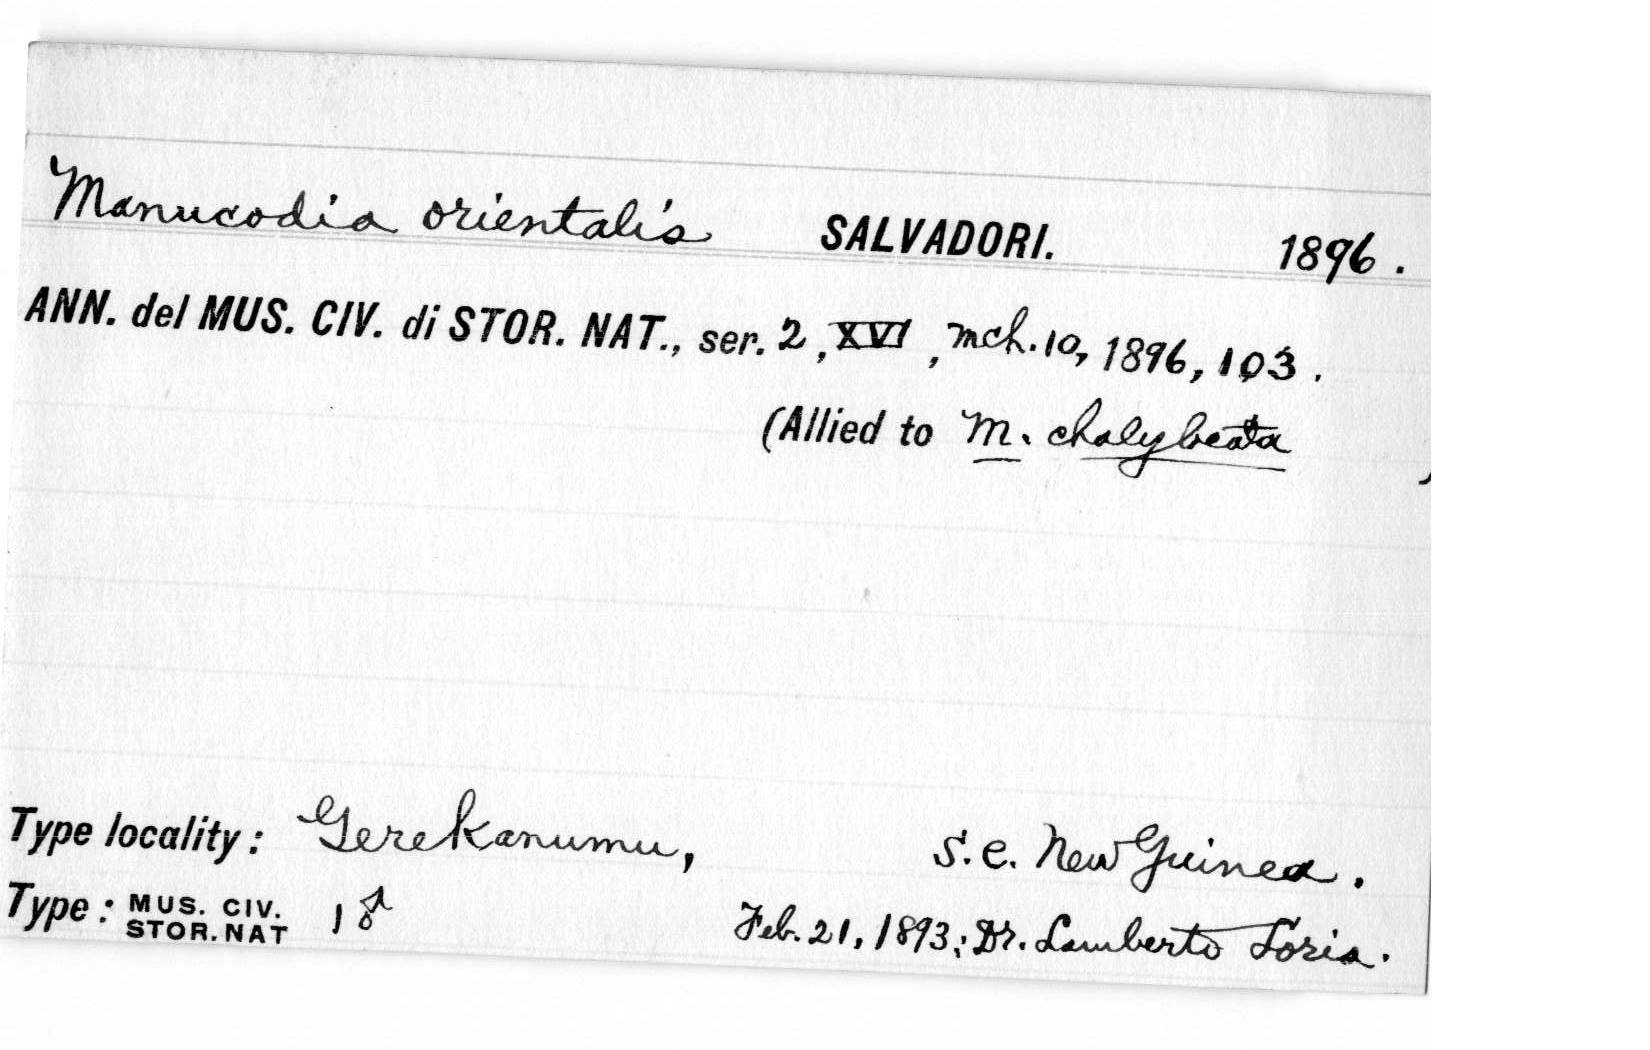 Manucodia orientalis SALVADORI. 1896.
ANN. del MUS. CIV. di STOR. NAT., ser. 2, XVI, Mch. 10, 1896, 103.
(Allied to M. chalybeata )
Type locality: Gerekanumu, S. e. New Guinea.
Type: MUS. CIV. STOR. NAT 1 ♂ Feb. 21, 1893; Dr. Lamberto Loria.